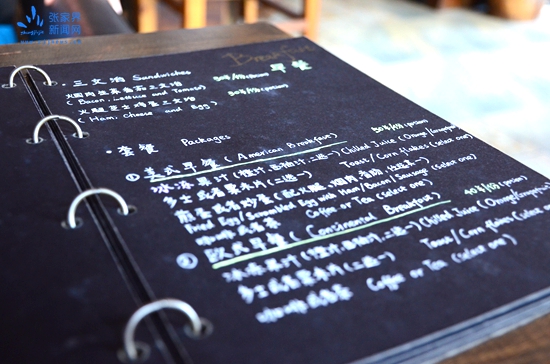 张家界
新闻网
Breakfast
早餐
·三文治 Sandwiches
火腿肉生菜番茄三文治 30元/份/person
(Bacon, Lettuce and Tomato)
火腿芝士鸡蛋三文治 30元/份/person
(Ham, Cheese and Egg)
·套餐 Packages
① 美式早餐 (American Breakfast) 50元/份/person
冰冻果汁 (橙汁,西柚汁,二选一) Chilled Juice (Orange/Grapefruit
多士或者粟米片 (二选一) Toast/Corn flakes (select one)
煎蛋或者炒蛋 (配火腿,
Fried Egg/Scrambled Egg with Ham/Bacon/Sausage (select one)
咖啡或者茶 Coffee or Tea (select one)
② 欧式早餐 (Continental Breakfast) 40元/份/person
冰冻果汁 (橙汁,西柚汁,二选一) Chilled Juice (Orange/Grapefruit
多士或者粟米片 (二选一) Toast/Corn flakes (select one)
咖啡或者茶 Coffee or Tea (select one)